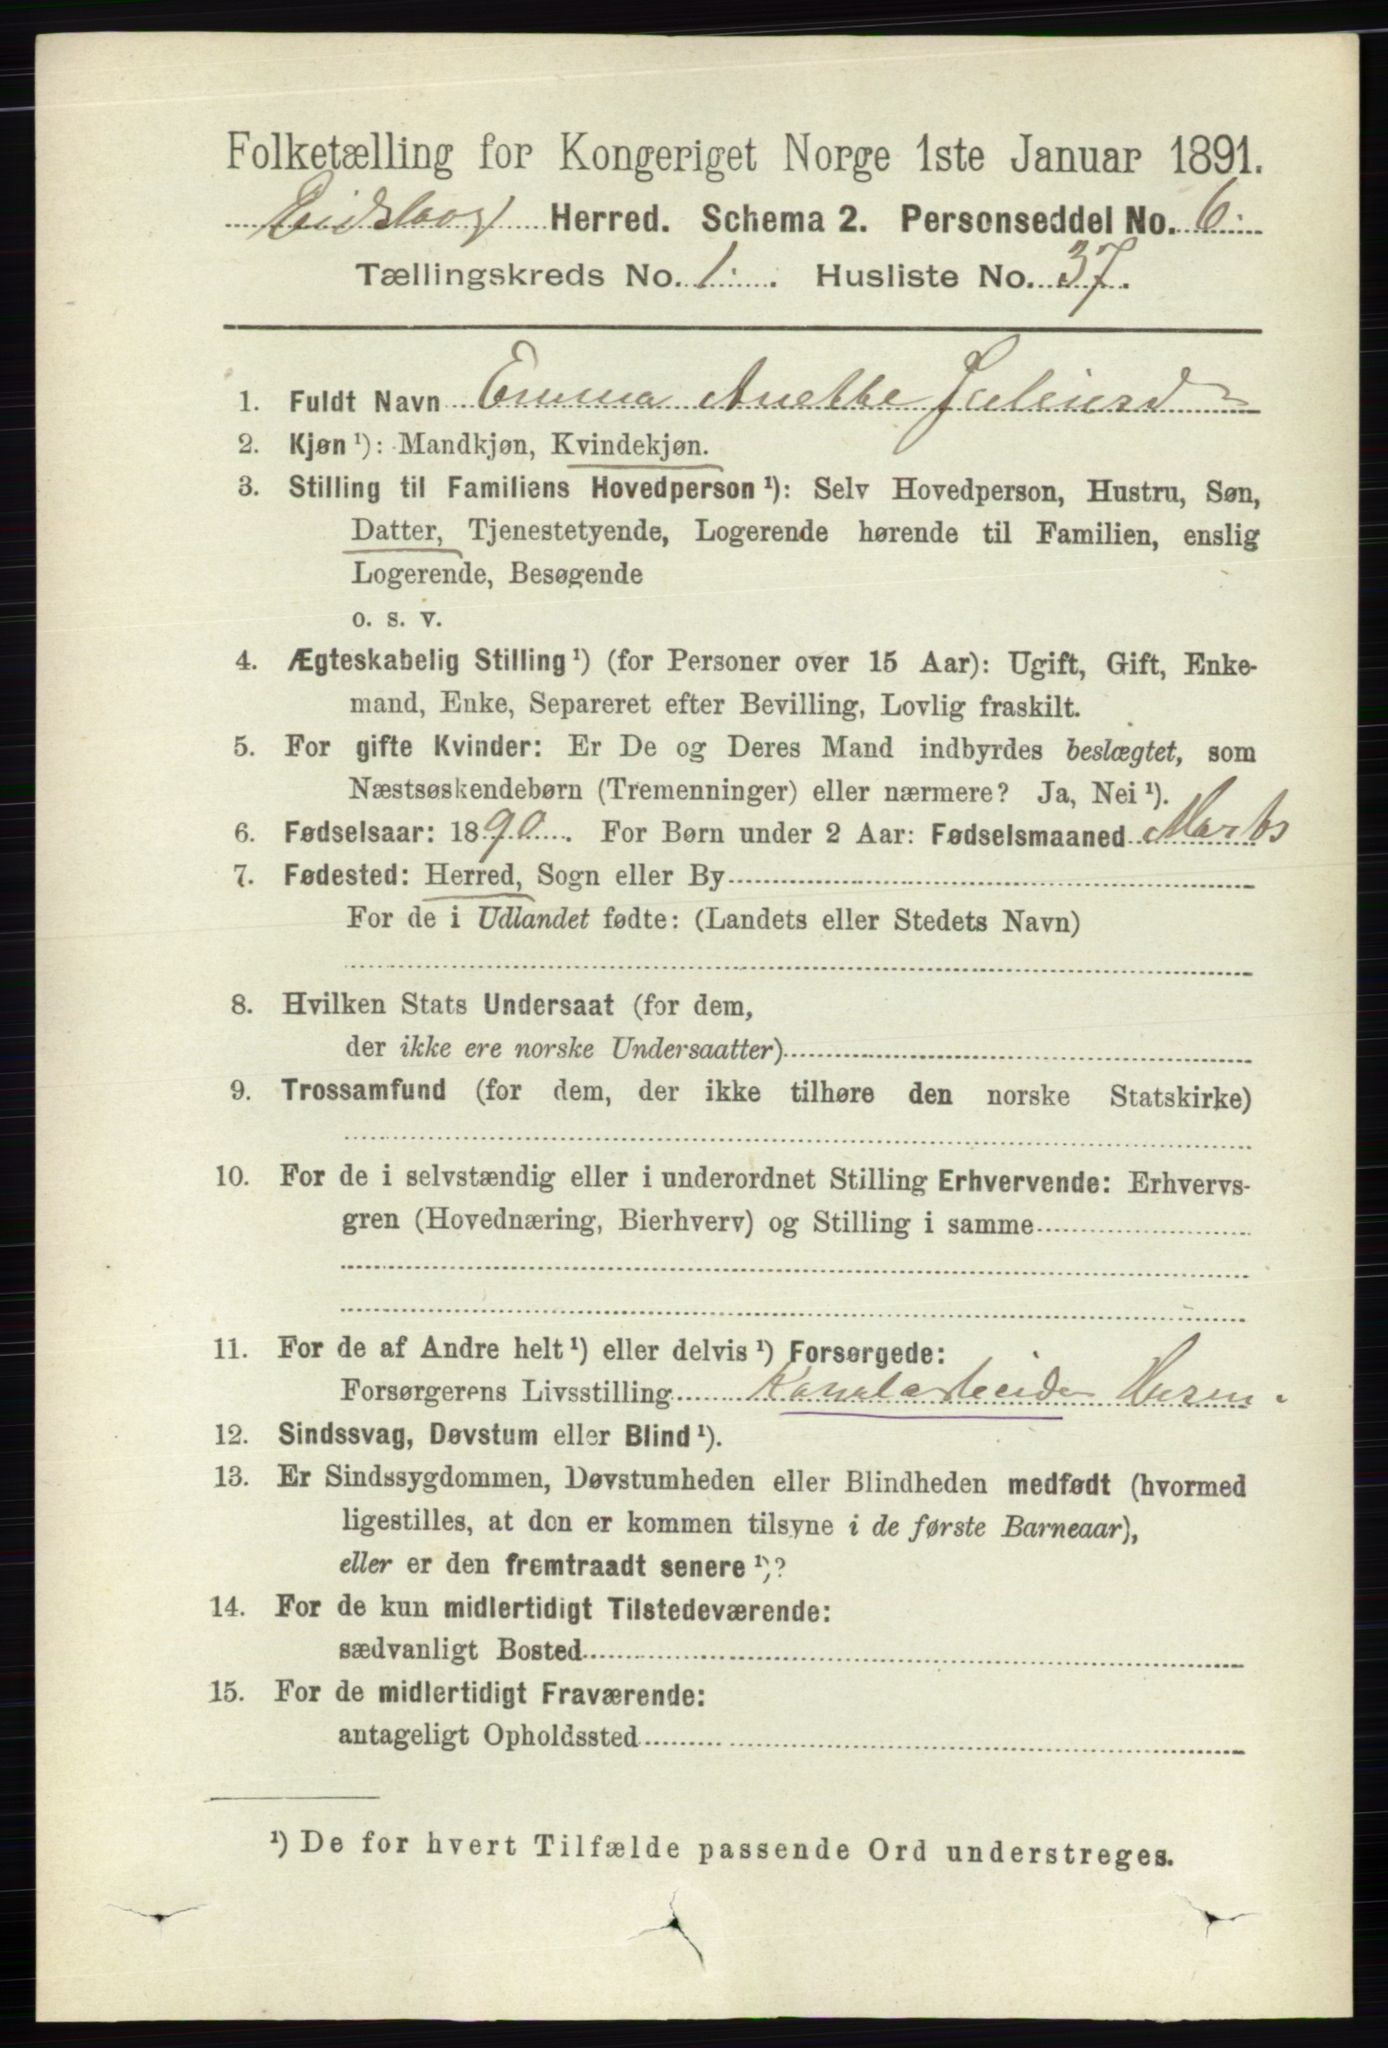 Folketælling for Kongeriget Norge 1ste Januar 1891.
Eidskog Herred. Schema 2. Personseddel No. 6.
Tællingskreds No. 1. Husliste No. 37.
1. Fuldt Navn Emma Anette Juliusd
2. Kjøn ¹): Mandkjøn, Kvindekjøn.
3. Stilling til Familiens Hovedperson ¹): Selv Hovedperson, Hustru, Søn,
Datter, Tjenestetyende, Logerende hørende til Familien, enslig
Logerende, Besøgende
o. s. v.
4. Ægteskabelig Stilling ¹) (for Personer over 15 Aar): Ugift, Gift, Enke-
mand, Enke, Separeret efter Bevilling, Lovlig fraskilt.
5. For gifte Kvinder: Er De og Deres Mand indbyrdes beslægtet, som
Næstsøskendebørn (Tremenninger) eller nærmere? Ja, Nei ¹).
6. Fødselsaar: 1890. For Børn under 2 Aar: Fødselsmaaned Marts
7. Fødested: Herred, Sogn eller By
For de i Udlandet fødte: (Landets eller Stedets Navn)
8. Hvilken Stats Undersaat (for dem,
der ikke ere norske Undersaatter)
9. Trossamfund (for dem, der ikke tilhøre den norske Statskirke)
10. For de i selvstændig eller i underordnet Stilling Erhvervende: Erhvervs-
gren (Hovednæring, Bierhverv) og Stilling i samme
11. For de af Andre helt ¹) eller delvis ¹) Forsørgede:
Forsørgerens Livsstilling Kanalarbeider Husm.
12. Sindssvag, Døvstum eller Blind ¹).
13. Er Sindssygdommen, Døvstumheden eller Blindheden medfødt (hvormed
ligestilles, at den er kommen tilsyne i de første Barneaar),
eller er den fremtraadt senere ¹)?
14. For de kun midlertidigt Tilstedeværende:
sædvanligt Bosted
15. For de midlertidigt Fraværende:
antageligt Opholdssted
¹) De for hvert Tilfælde passende Ord understreges.